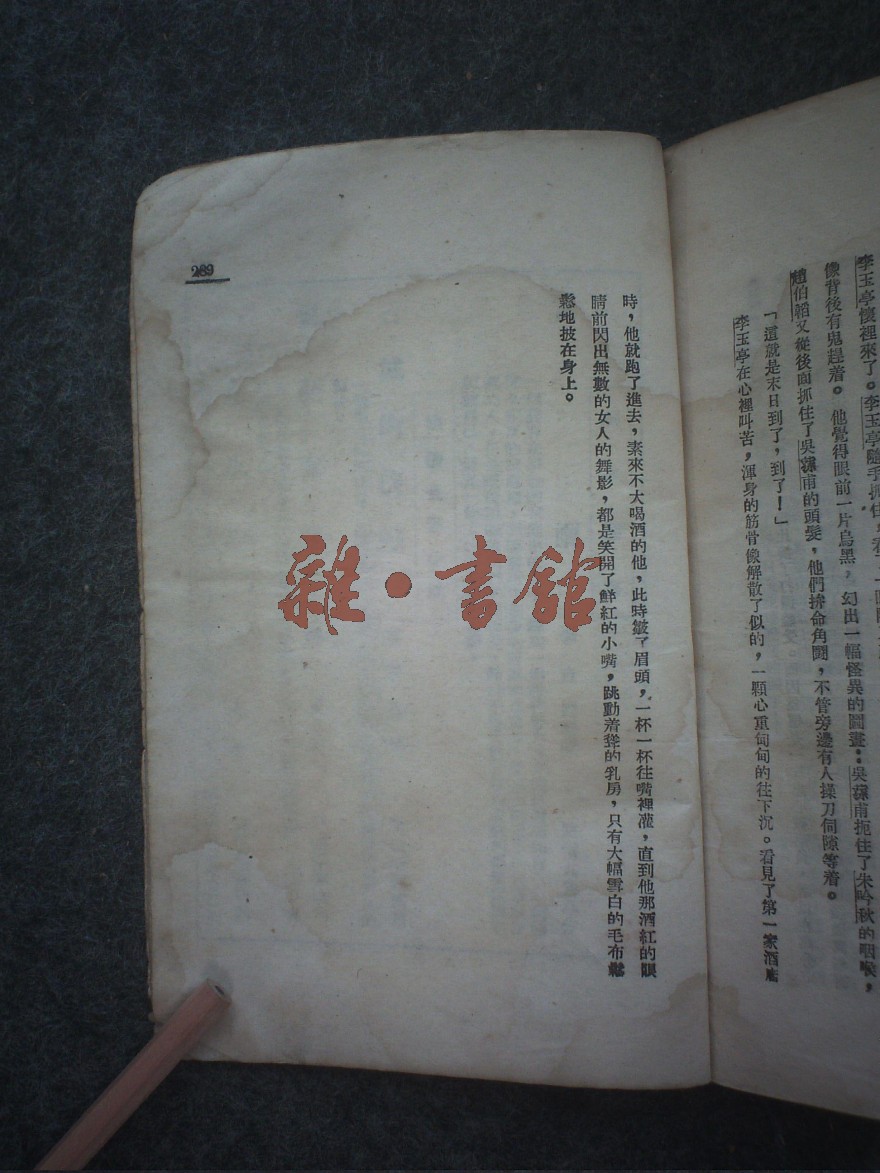 李玉亭懷裡來了。李玉亭隨手抓住，看了一
像背後有鬼趕着。他覺得眼前一片烏黑，幻出一幅怪異的圖畫：吳蓀甫扼住了朱吟秋的咽喉，
趙伯韜又從後面抓住了吳蓀甫的頭髮，他們拚命角鬪，不管旁邊有人操刀伺隙等着。
「這就是末日到了，到了！」
李玉亭在心裡叫苦，渾身的筋骨像解散了似的，一顆心重甸甸的往下沉。看見了第一家酒店
時，他就跑了進去，素來不大喝酒的他，此時皺了眉頭，一杯一杯往嘴裡灌，直到他那酒紅的眼
睛前閃出無數的女人的舞影，都是笑開了鮮紅的小嘴，跳動着聳的乳房，只有大幅雪白的毛布鬆
鬆地披在身上。
289
雜·書館